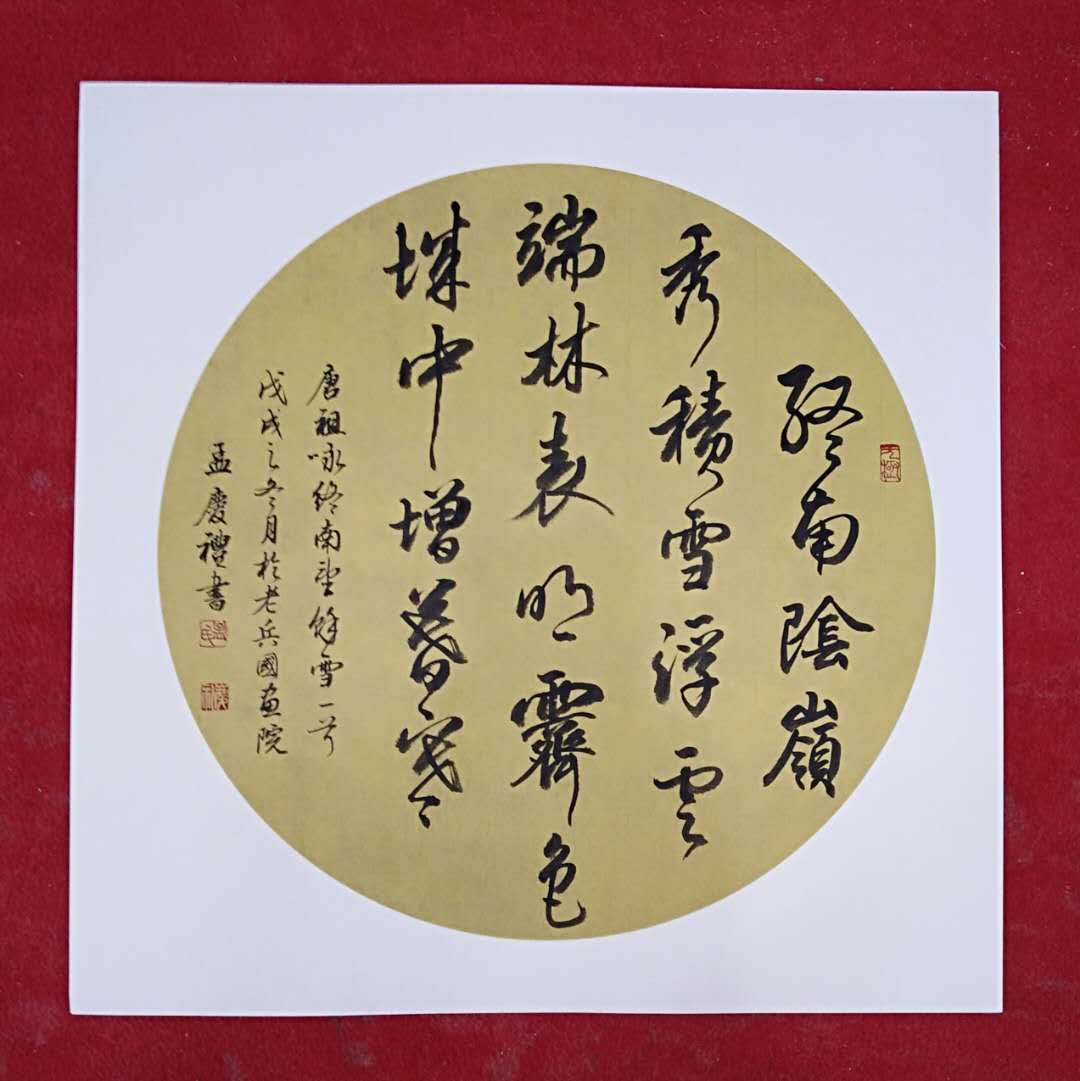 終南陰嶺
秀積雪浮雲
端林表明霽色
城中增暮寒
唐祖咏終南望餘雪一首
戊戌之冬月於老兵國画院
孟慶禮書